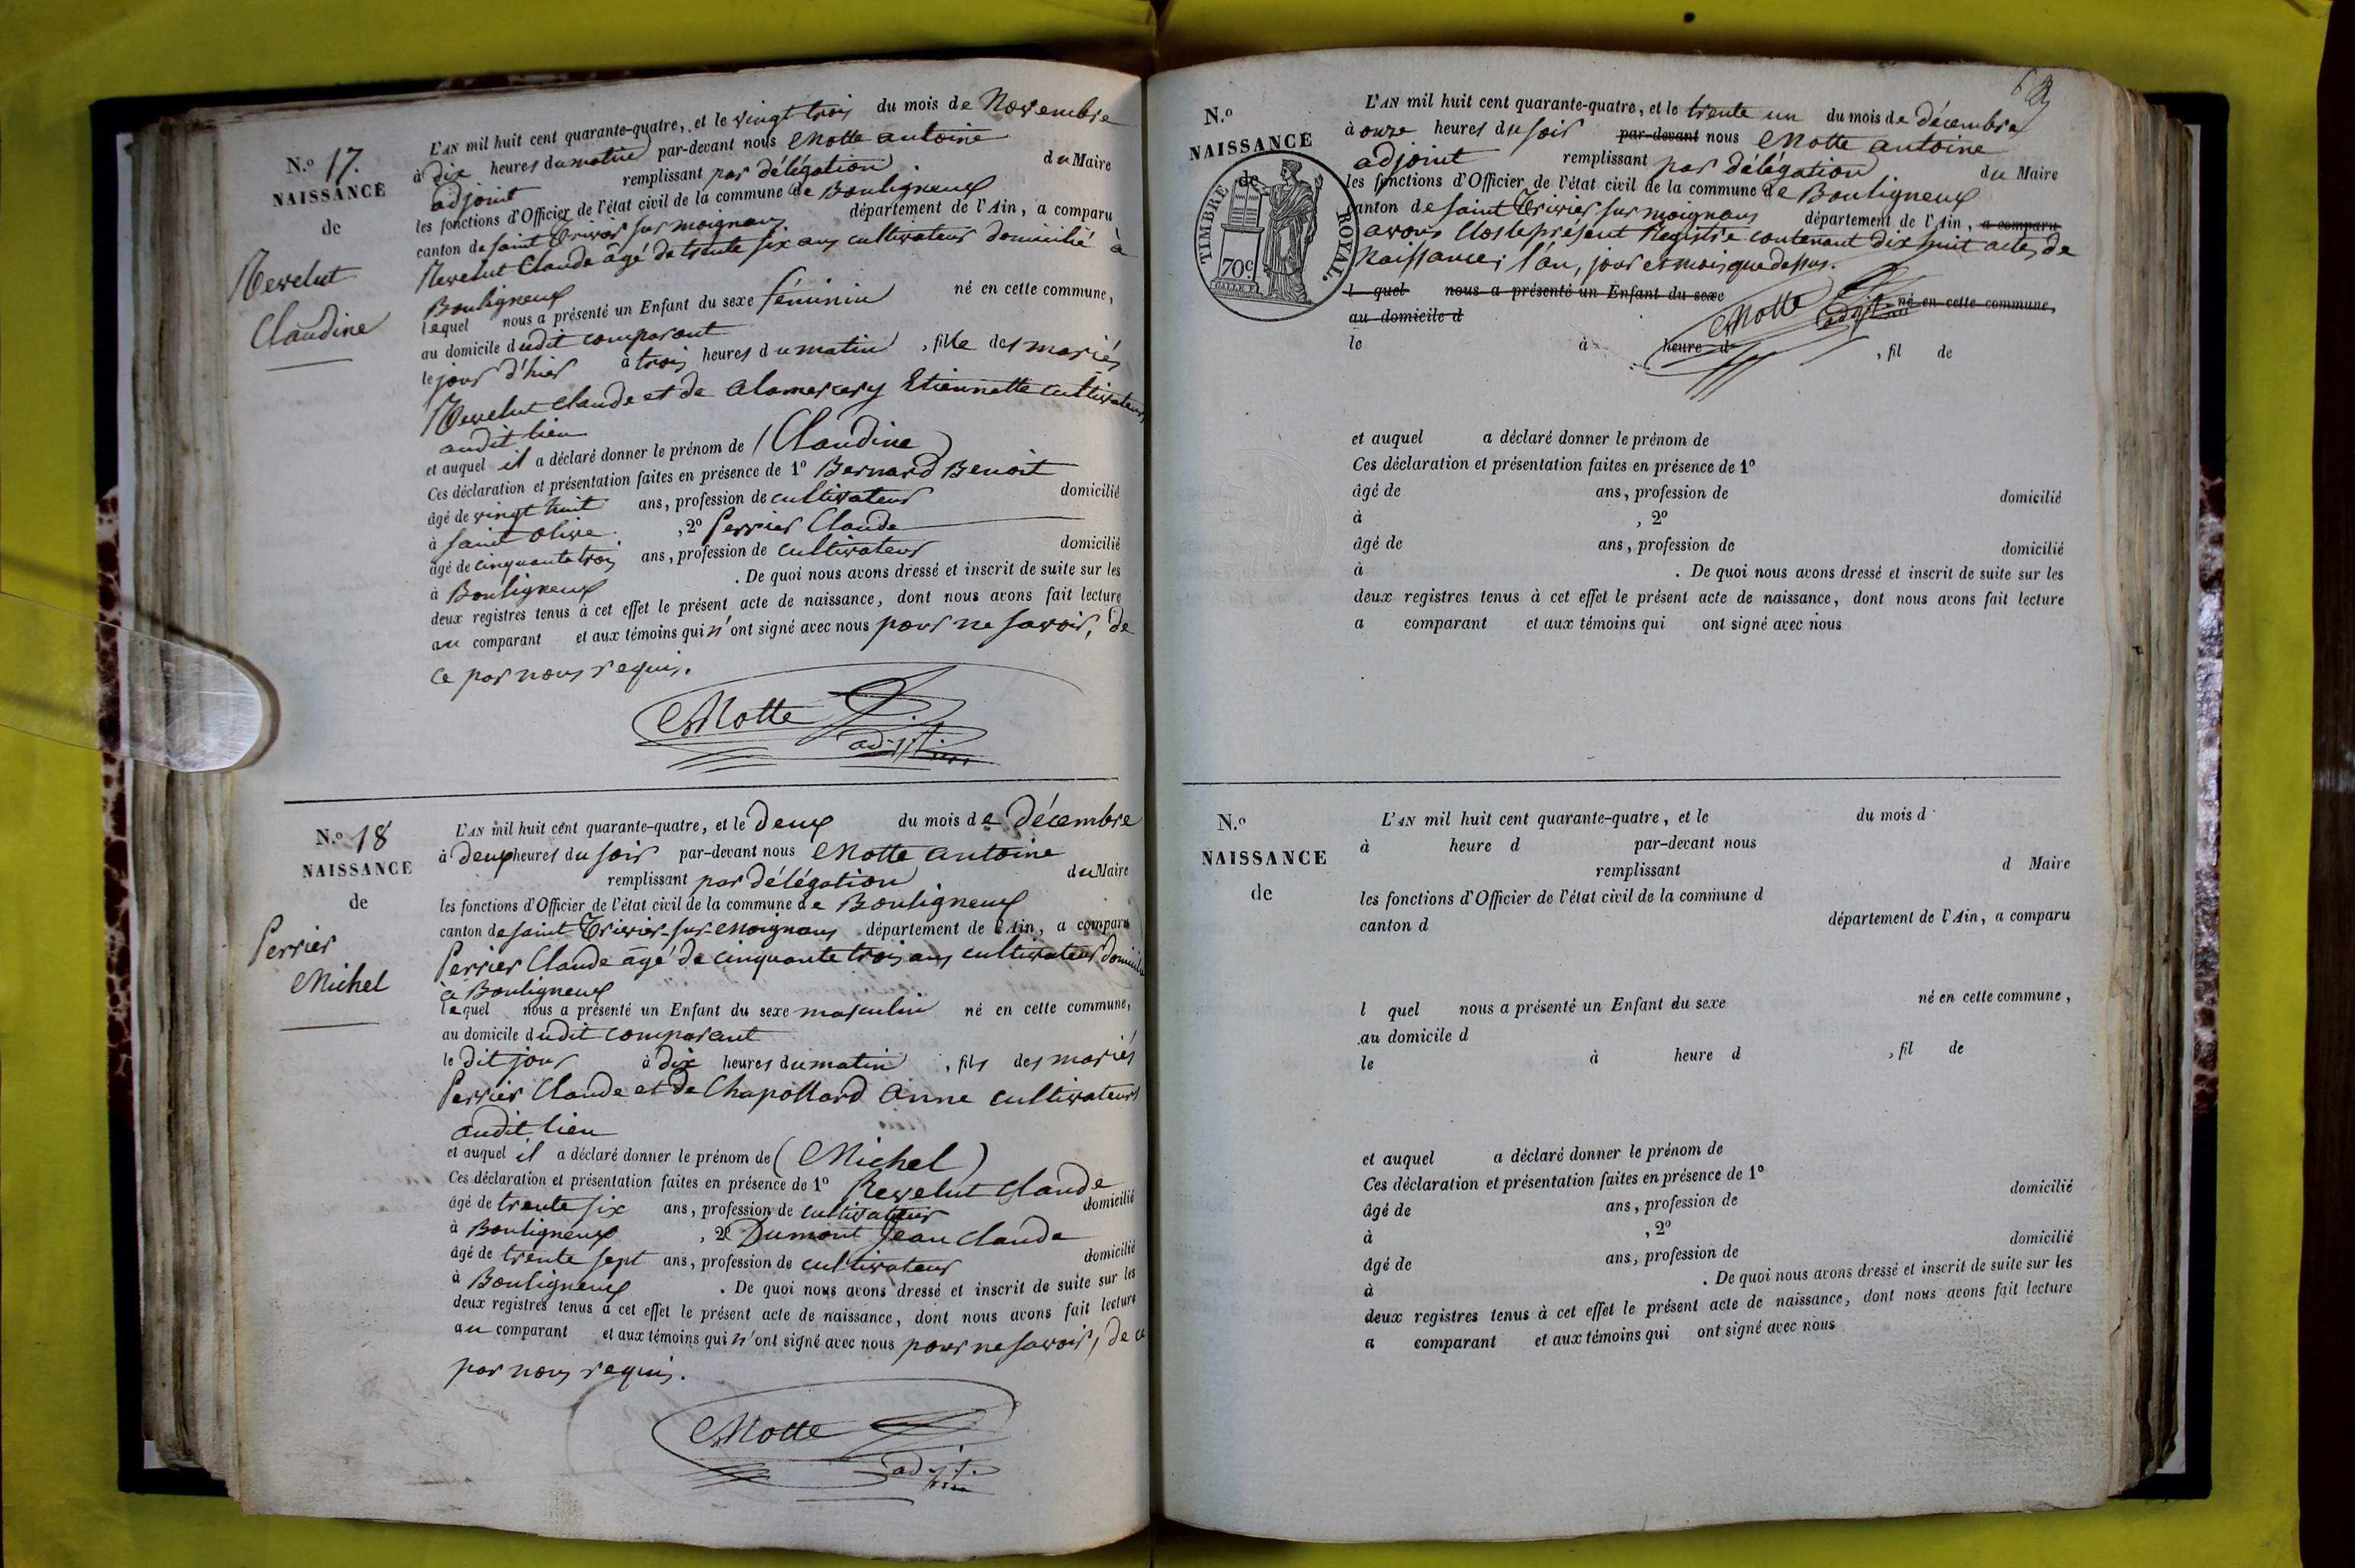 N.º 17.
NAISSANCE
de
Revelut
Claudine
L'AN mil huit cent quarante-quatre, et le vingt trois du mois de Novembre
à dix heures du matin par-devant nous Motte antoine
adjoint remplissant par délégation du Maire
les fonctions d'Officier de l'état civil de la commune de Bouligneux
canton de saint Trivier sur moignans département de l'Ain, a comparu
Revelut Claude âgé de trente six ans cultivateur domicilié à
Bouligneux
lequel nous a présenté un Enfant du sexe féminin né en cette commune,
au domicile dudit comparant
le jour d'hier à trois heures du matin, fille des mariés
Revelut Claude et de Alamercery Etiennette cultivateurs
audit lieu
et auquel il a déclaré donner le prénom de (Claudine)
Ces déclaration et présentation faites en présence de 1º Bernard Benoit
âgé de vingt huit ans, profession de cultivateur domicilié
à saint olive, 2º Perrier Claude
âgé de cinquante trois ans, profession de cultivateur domicilié
à Bouligneux. De quoi nous avons dressé et inscrit de suite sur les
deux registres tenus à cet effet le présent acte de naissance, dont nous avons fait lecture
au comparant et aux témoins qui n'ont signé avec nous pour ne savoir, de
ce par nous requis.
Motte
adjt.
N.º 18
NAISSANCE
de
Perrier
Michel
L'AN mil huit cent quarante-quatre, et le deux du mois de Décembre
à deux heures du soir par-devant nous Motte antoine
remplissant par délégation du Maire
les fonctions d'Officier de l'état civil de la commune de Bouligneux
canton de saint Trivier-sur-Moignans département de l'Ain, a comparu
Perrier Claude âgé de cinquante trois ans cultivateur domicilié
à Bouligneux
lequel nous a présenté un Enfant du sexe masculin né en cette commune,
au domicile dudit comparant
le dit jour à dix heures du matin, fils des mariés
Perrier Claude et de Chapollard Anne cultivateurs
audit lieu
et auquel il a déclaré donner le prénom de (Michel)
Ces déclaration et présentation faites en présence de 1º Revelut Claude
âgé de trente six ans, profession de cultivateur domicilié
à Bouligneux, 2º Dumont Jean Claude
âgé de trente sept ans, profession de cultivateur domicilié
à Bouligneux. De quoi nous avons dressé et inscrit de suite sur les
deux registres tenus à cet effet le présent acte de naissance, dont nous avons fait lecture
au comparant et aux témoins qui n'ont signé avec nous pour ne savoir, de ce
par nous requis.
Motte
adjt.
N.º
NAISSANCE
de
TIMBRE ROYAL.
70 c
L'AN mil huit cent quarante-quatre, et le trente un du mois de décembre
à onze heures du soir par-devant nous Motte Antoine
adjoint remplissant par délégation du Maire
les fonctions d'Officier de l'état civil de la commune de Bouligneux
canton de saint Trivier sur moignans département de l'Ain, a comparu
avons Clos le présent Registre contenant dix huit actes de
Naissance; l'an, jour et mois que dessus.
l quel nous a présenté un Enfant du sexe né en cette commune,
Motte adjt.
au domicile d
le à heure d , fil de
et auquel a déclaré donner le prénom de
Ces déclaration et présentation faites en présence de 1º
âgé de ans, profession de domicilié
à , 2º
âgé de ans, profession de domicilié
à . De quoi nous avons dressé et inscrit de suite sur les
deux registres tenus à cet effet le présent acte de naissance, dont nous avons fait lecture
a comparant et aux témoins qui ont signé avec nous
N.º
NAISSANCE
de
L'AN mil huit cent quarante-quatre, et le du mois d
à heure d par-devant nous
remplissant d Maire
les fonctions d'Officier de l'état civil de la commune d
canton d département de l'Ain, a comparu
l quel nous a présenté un Enfant du sexe né en cette commune,
au domicile d
le à heure d , fil de
et auquel a déclaré donner le prénom de
Ces déclaration et présentation faites en présence de 1º
âgé de ans, profession de domicilié
à , 2º
âgé de ans, profession de domicilié
à . De quoi nous avons dressé et inscrit de suite sur les
deux registres tenus à cet effet le présent acte de naissance, dont nous avons fait lecture
a comparant et aux témoins qui ont signé avec nous